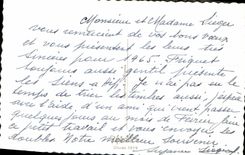 Monsieur et Madame Sieger
vous remercient de vos bons vœux
et vous présentent les leurs très
sincères pour 1965.
toujours aussi gentil présente
les siens à je n'ai pas eu le
temps de trier les timbres aussi, je
l'aide d'un ami qui vient passer
quelques jours au mois de Février
ce petit travail et vous envoyer les
doubles. Notre meilleur souvenir